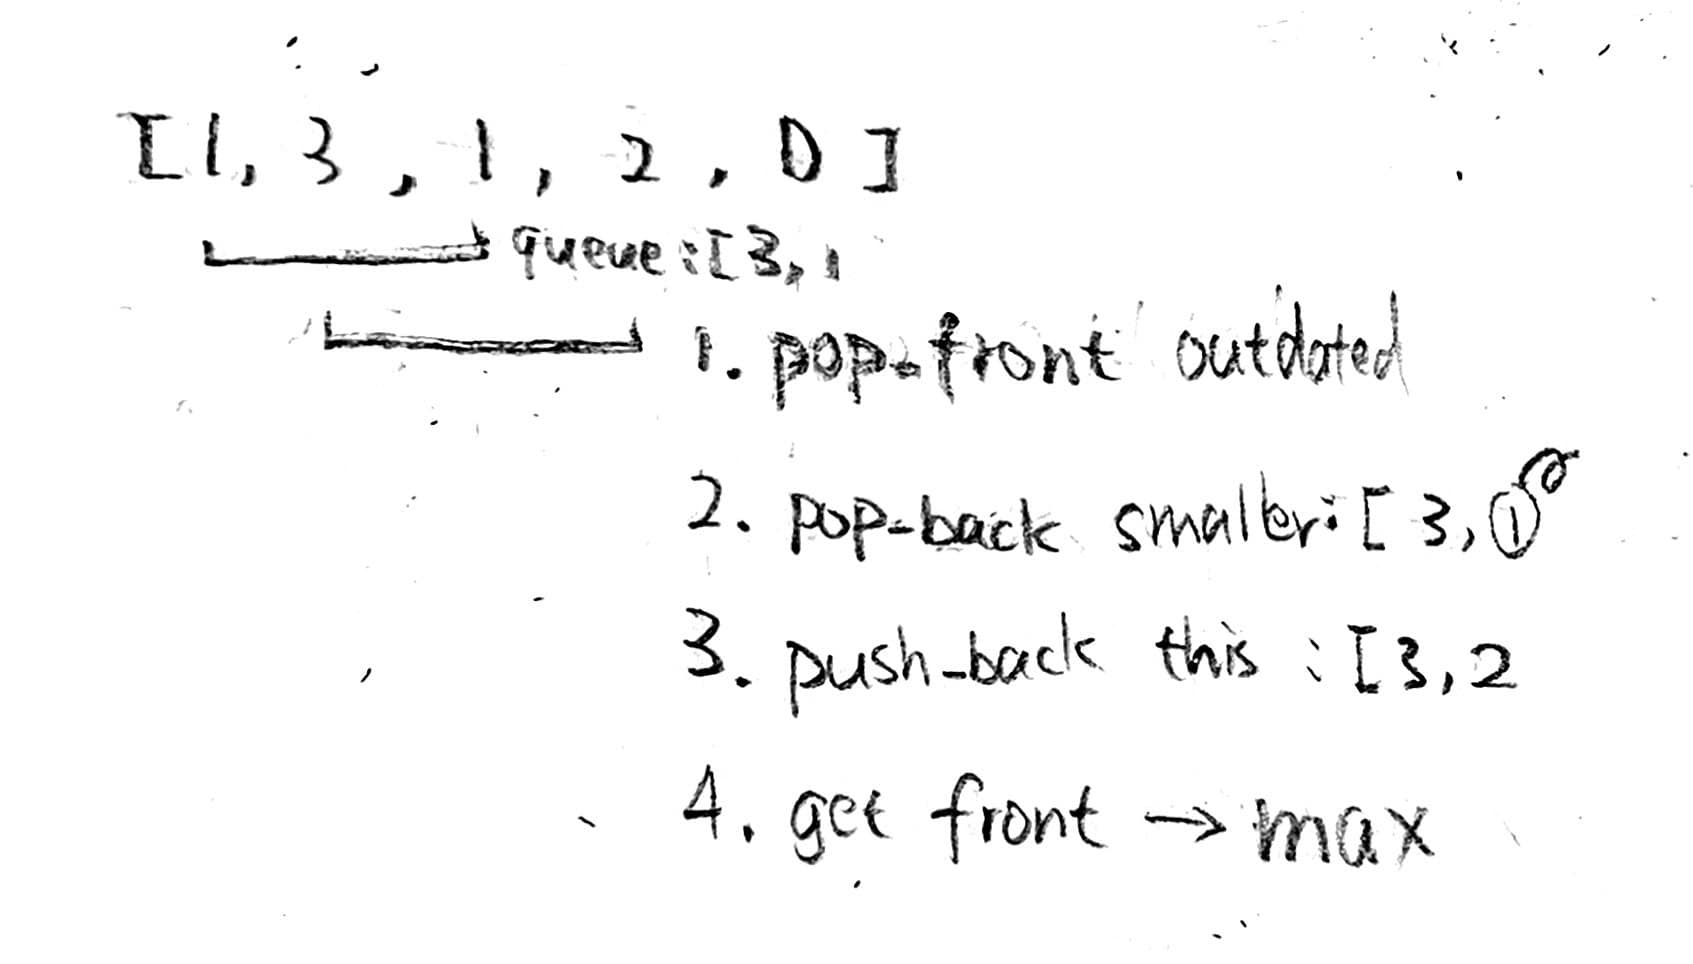 [1, 3, 1, 2, 0]
queue:[3, 1
1. pop-front outdated
2. pop-back smaller:[3, 1
3. push_back this:[3, 2
4. get front → max